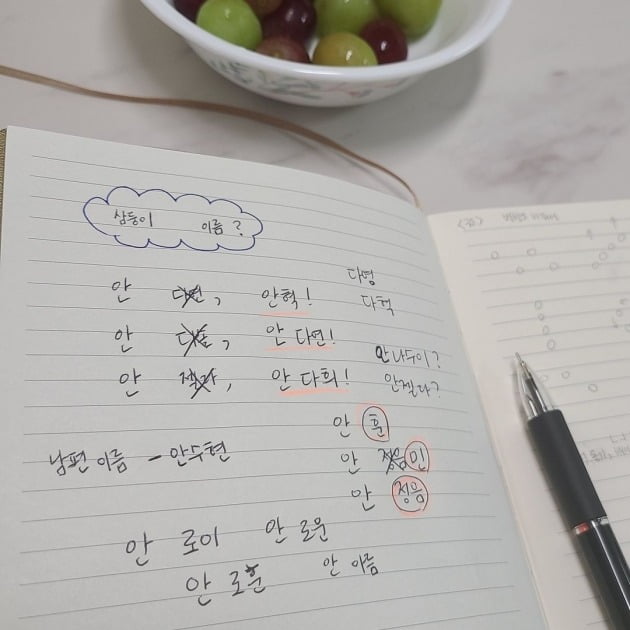 삼둥이 이름?
다영
안 , 안혁!
다혁
안 , 안 다연!
안나수이?
안 젤라, 안 다희!
안젤라?
안 훈
안 정음 민
안 정음
남편 이름 - 안수현
안 로이 안 로운
안 로훈 안 이름